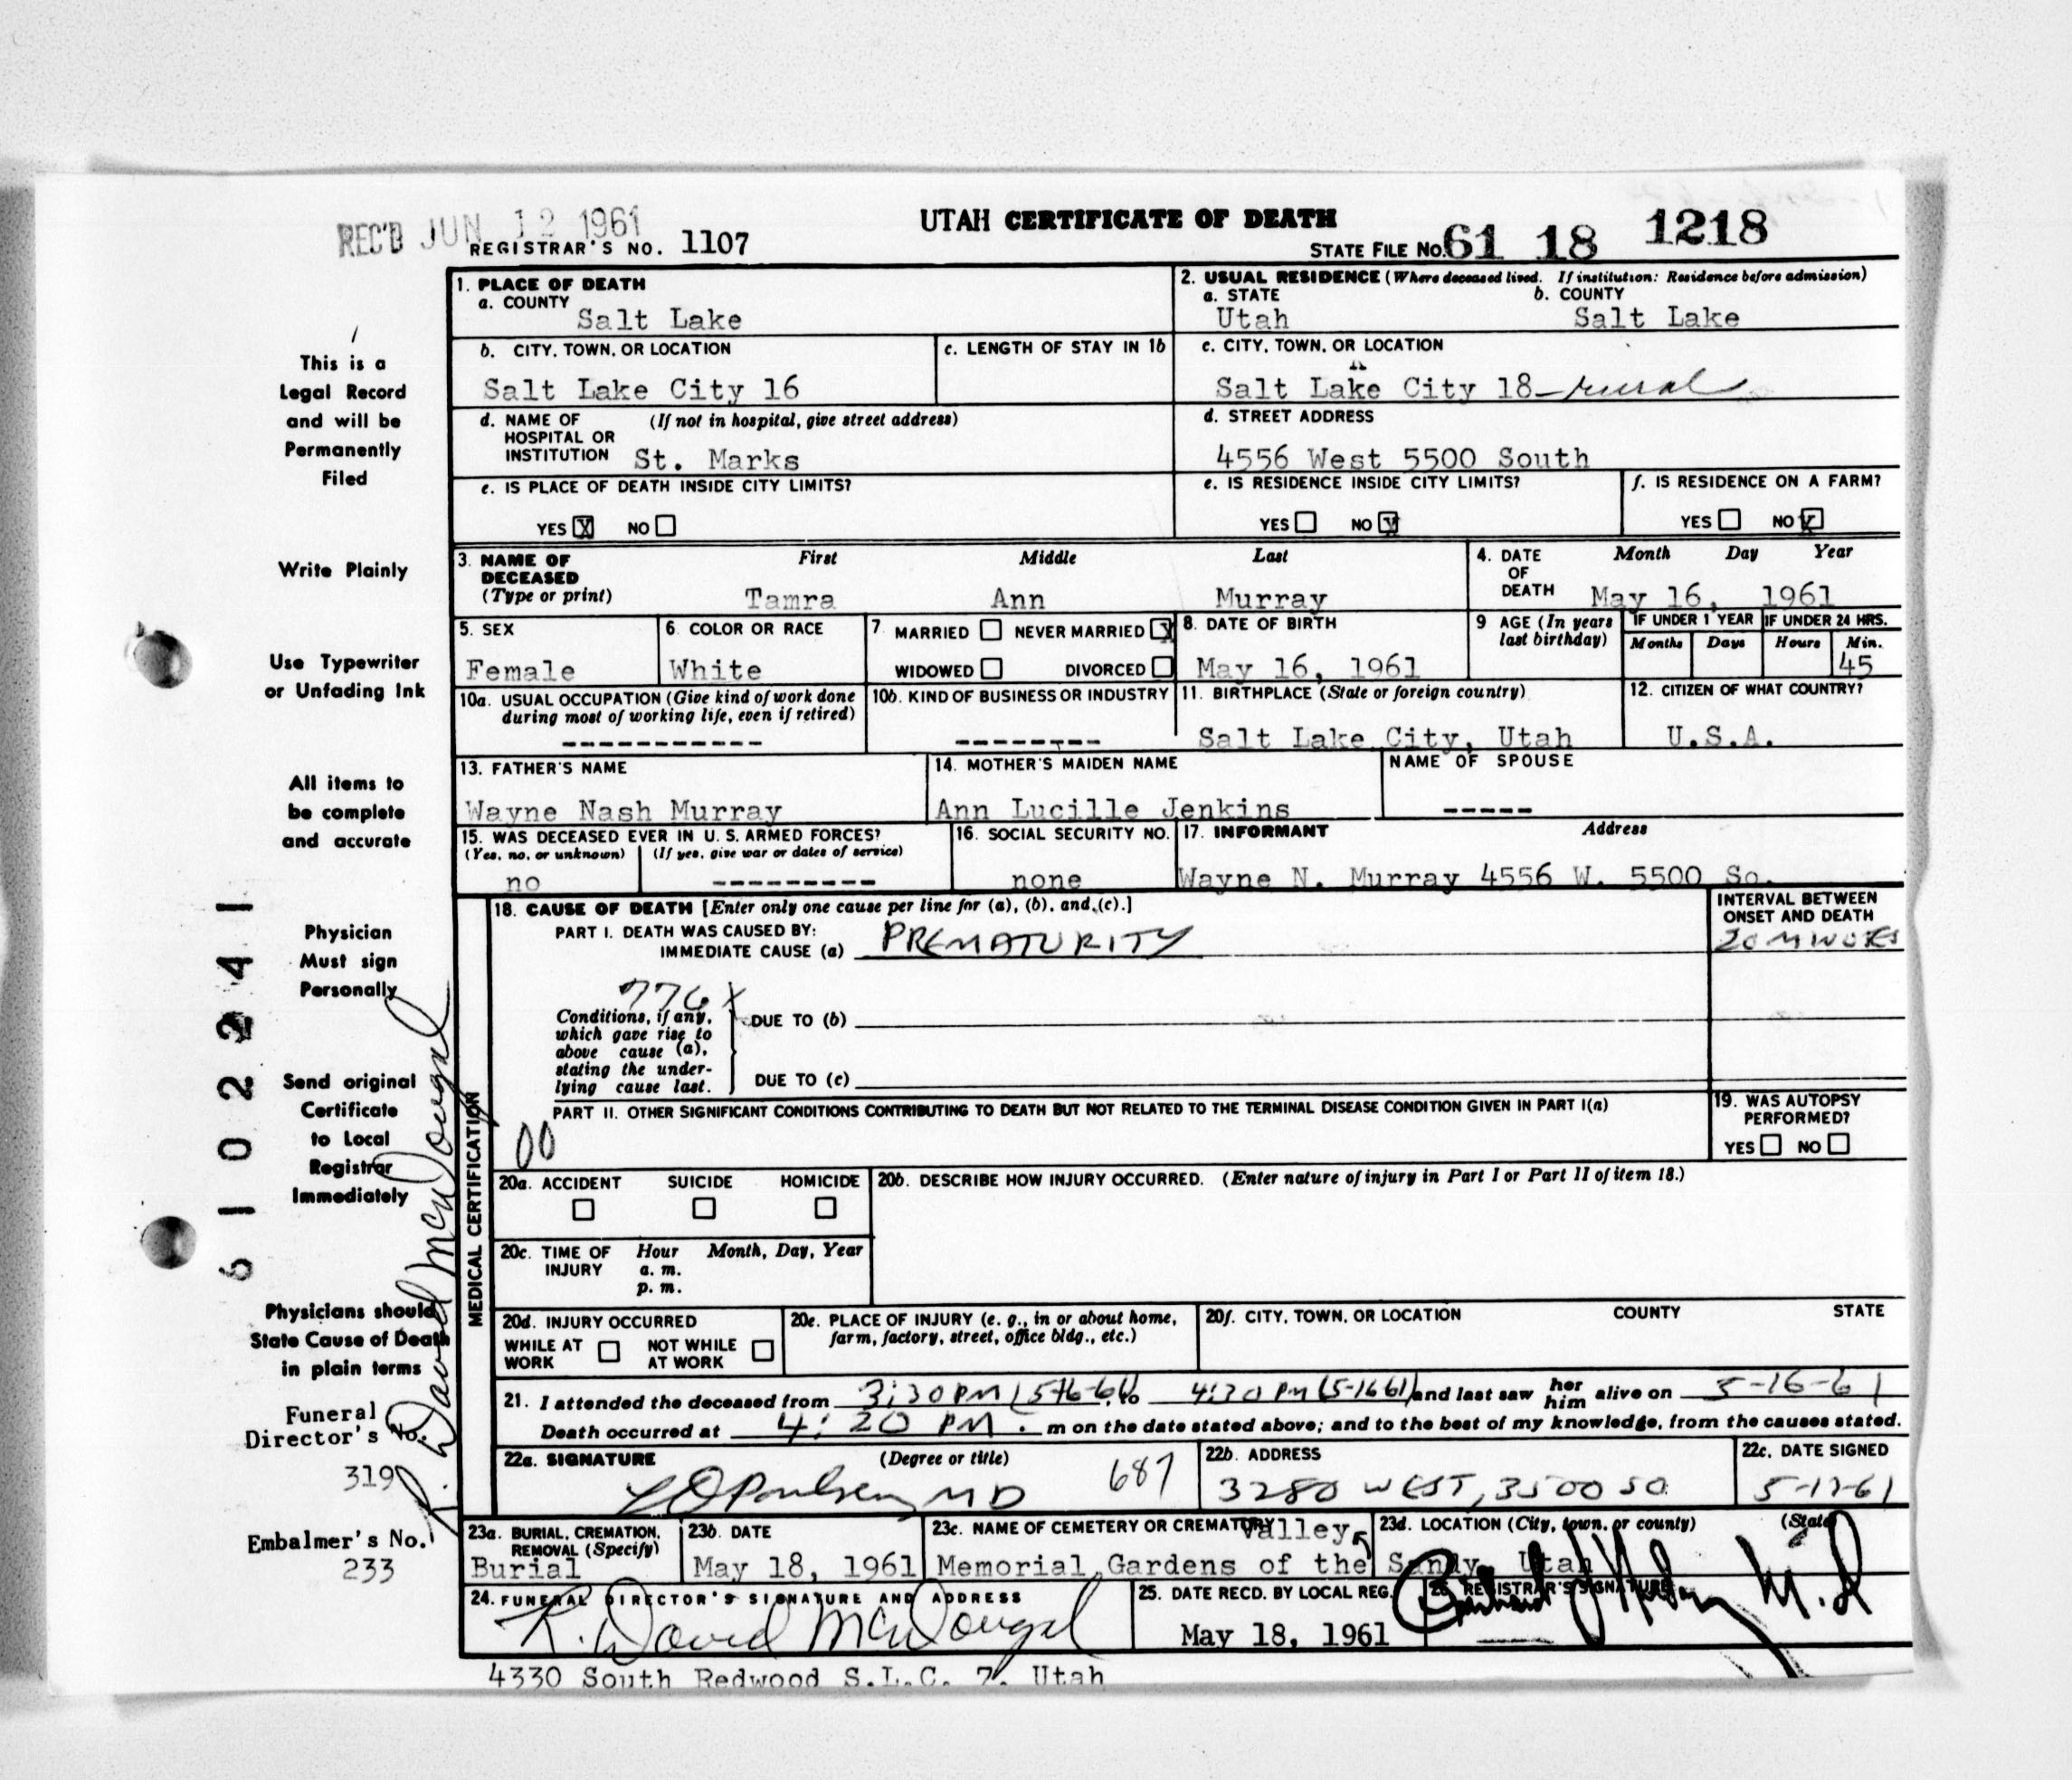 REC'D JUN 12 1961
UTAH CERTIFICATE OF DEATH
REGISTRAR'S NO. 1107
STATE FILE NO. 61 18 1218
1. PLACE OF DEATH
a. COUNTY
Salt Lake
2. USUAL RESIDENCE (Where deceased lived. If institution: Residence before admission)
a. STATE b. COUNTY
Utah Salt Lake
b. CITY, TOWN, OR LOCATION
Salt Lake City 16
c. LENGTH OF STAY IN 1b
c. CITY, TOWN, OR LOCATION
Salt Lake City 18 - rural
d. NAME OF (If not in hospital, give street address)
HOSPITAL OR
INSTITUTION St. Marks
d. STREET ADDRESS
4556 West 5500 South
e. IS PLACE OF DEATH INSIDE CITY LIMITS?
YES X NO
e. IS RESIDENCE INSIDE CITY LIMITS?
YES NO X
f. IS RESIDENCE ON A FARM?
YES NO X
3. NAME OF First Middle Last
DECEASED
(Type or print) Tamra Ann Murray
4. DATE Month Day Year
OF
DEATH May 16, 1961
5. SEX
Female
6. COLOR OR RACE
White
7. MARRIED NEVER MARRIED X
WIDOWED DIVORCED
8. DATE OF BIRTH
May 16, 1961
9 AGE (In years
last birthday)
IF UNDER 1 YEAR IF UNDER 24 HRS.
Months Days Hours Min.
45
10a. USUAL OCCUPATION (Give kind of work done
during most of working life, even if retired)
-----------
10b. KIND OF BUSINESS OR INDUSTRY
--------
11. BIRTHPLACE (State or foreign country)
Salt Lake City, Utah
12. CITIZEN OF WHAT COUNTRY?
U.S.A.
13. FATHER'S NAME
Wayne Nash Murray
14. MOTHER'S MAIDEN NAME
Ann Lucille Jenkins
NAME OF SPOUSE
-----
15. WAS DECEASED EVER IN U. S. ARMED FORCES?
(Yes, no, or unknown) (If yes, give war or dates of service)
no ---------
16. SOCIAL SECURITY NO.
none
17. INFORMANT Address
Wayne N. Murray 4556 W. 5500 So.
18. CAUSE OF DEATH [Enter only one cause per line for (a), (b), and (c).]
PART I. DEATH WAS CAUSED BY:
IMMEDIATE CAUSE (a) PREMATURITY
INTERVAL BETWEEN
ONSET AND DEATH
20 MINUTES
776 X
Conditions, if any,
which gave rise to
above cause (a),
stating the under-
lying cause last.
DUE TO (b)
DUE TO (c)
PART II. OTHER SIGNIFICANT CONDITIONS CONTRIBUTING TO DEATH BUT NOT RELATED TO THE TERMINAL DISEASE CONDITION GIVEN IN PART I(a)
00
19. WAS AUTOPSY
PERFORMED?
YES NO
20a. ACCIDENT SUICIDE HOMICIDE
20b. DESCRIBE HOW INJURY OCCURRED. (Enter nature of injury in Part I or Part II of item 18.)
20c. TIME OF Hour Month, Day, Year
INJURY a. m.
p. m.
20d. INJURY OCCURRED
WHILE AT WORK NOT WHILE AT WORK
20e. PLACE OF INJURY (e. g., in or about home,
farm, factory, street, office bldg., etc.)
20f. CITY, TOWN, OR LOCATION COUNTY STATE
21. I attended the deceased from 3:30 PM (5-16-61) to 4:20 PM (5-16 61) and last saw her him alive on 5-16-61
Death occurred at 4:20 PM. m on the date stated above; and to the best of my knowledge, from the causes stated.
22a. SIGNATURE (Degree or title)
L D Poulsen MD 687
22b. ADDRESS
3280 WEST, 3500 SO.
22c. DATE SIGNED
5-17-61
23a. BURIAL, CREMATION,
REMOVAL (Specify)
Burial
23b. DATE
May 18, 1961
23c. NAME OF CEMETERY OR CREMATORY
Valley
Memorial Gardens of the
23d. LOCATION (City, town, or county) (State)
Sandy, Utah
24. FUNERAL DIRECTOR'S SIGNATURE AND ADDRESS
R. David McDougal
25. DATE RECD. BY LOCAL REG.
May 18, 1961
26. REGISTRAR'S SIGNATURE
M.D
4330 South Redwood S.L.C. 7. Utah
This is a
Legal Record
and will be
Permanently
Filed
Write Plainly
Use Typewriter
or Unfading Ink
All items to
be complete
and accurate
Physician
Must sign
Personally
Send original
Certificate
to Local
Registrar
Immediately
Physicians should
State Cause of Death
in plain terms
Funeral
Director's No.
319
Embalmer's No.
233
6102241
R. David McDougal
MEDICAL CERTIFICATION